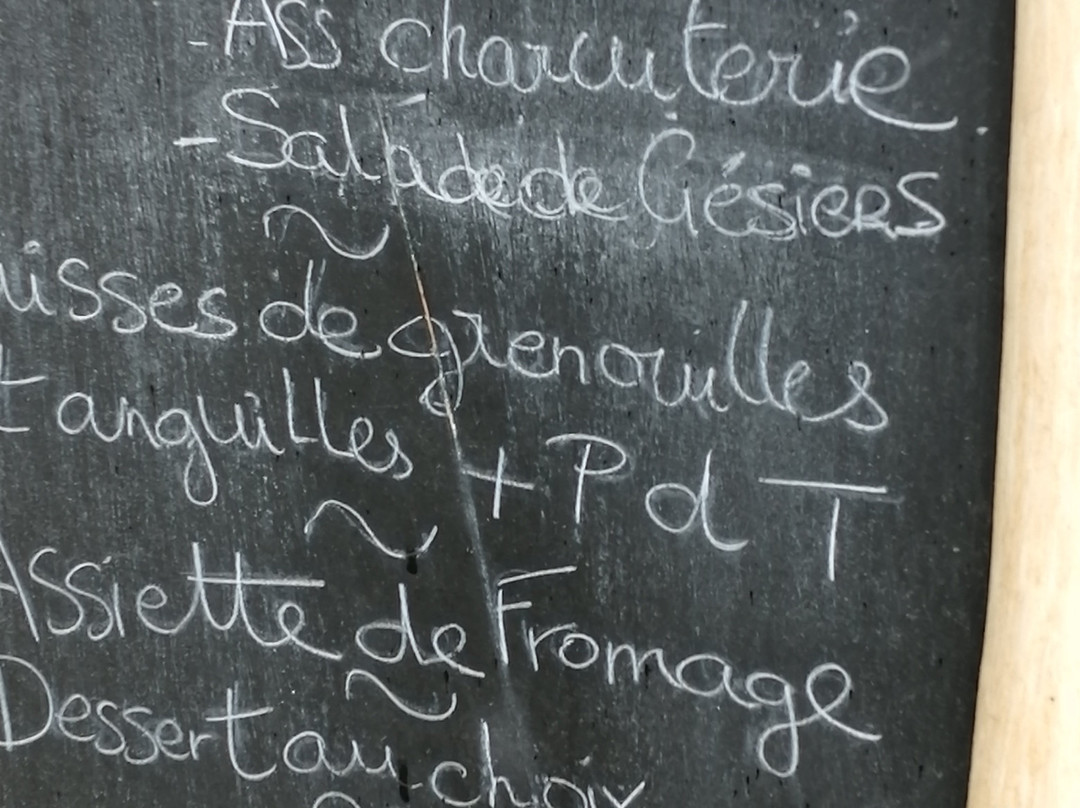 - Ass charcuterie
- Salade de Gésiers
~
uisses de grenouilles
t anguilles + P d T
~
Assiette de Fromage
~
Dessert au choix